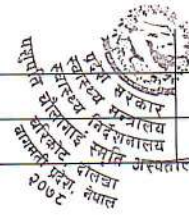 प्रदेश सरकार
स्वास्थ्य मन्त्रालय
स्वास्थ्य निर्देशनालय
पशुपति चौलागाई स्मृति अस्पताल
चरिकोट दोलखा
बागमती प्रदेश, नेपाल
२०७८